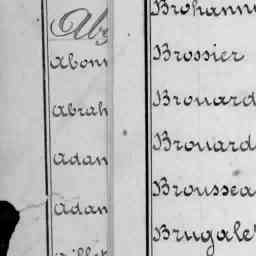 Ab
Abon
Abrah
Adan
Adan
illet
Brohann
Brossier
Brouard
Brouard
Broussea
Brugale